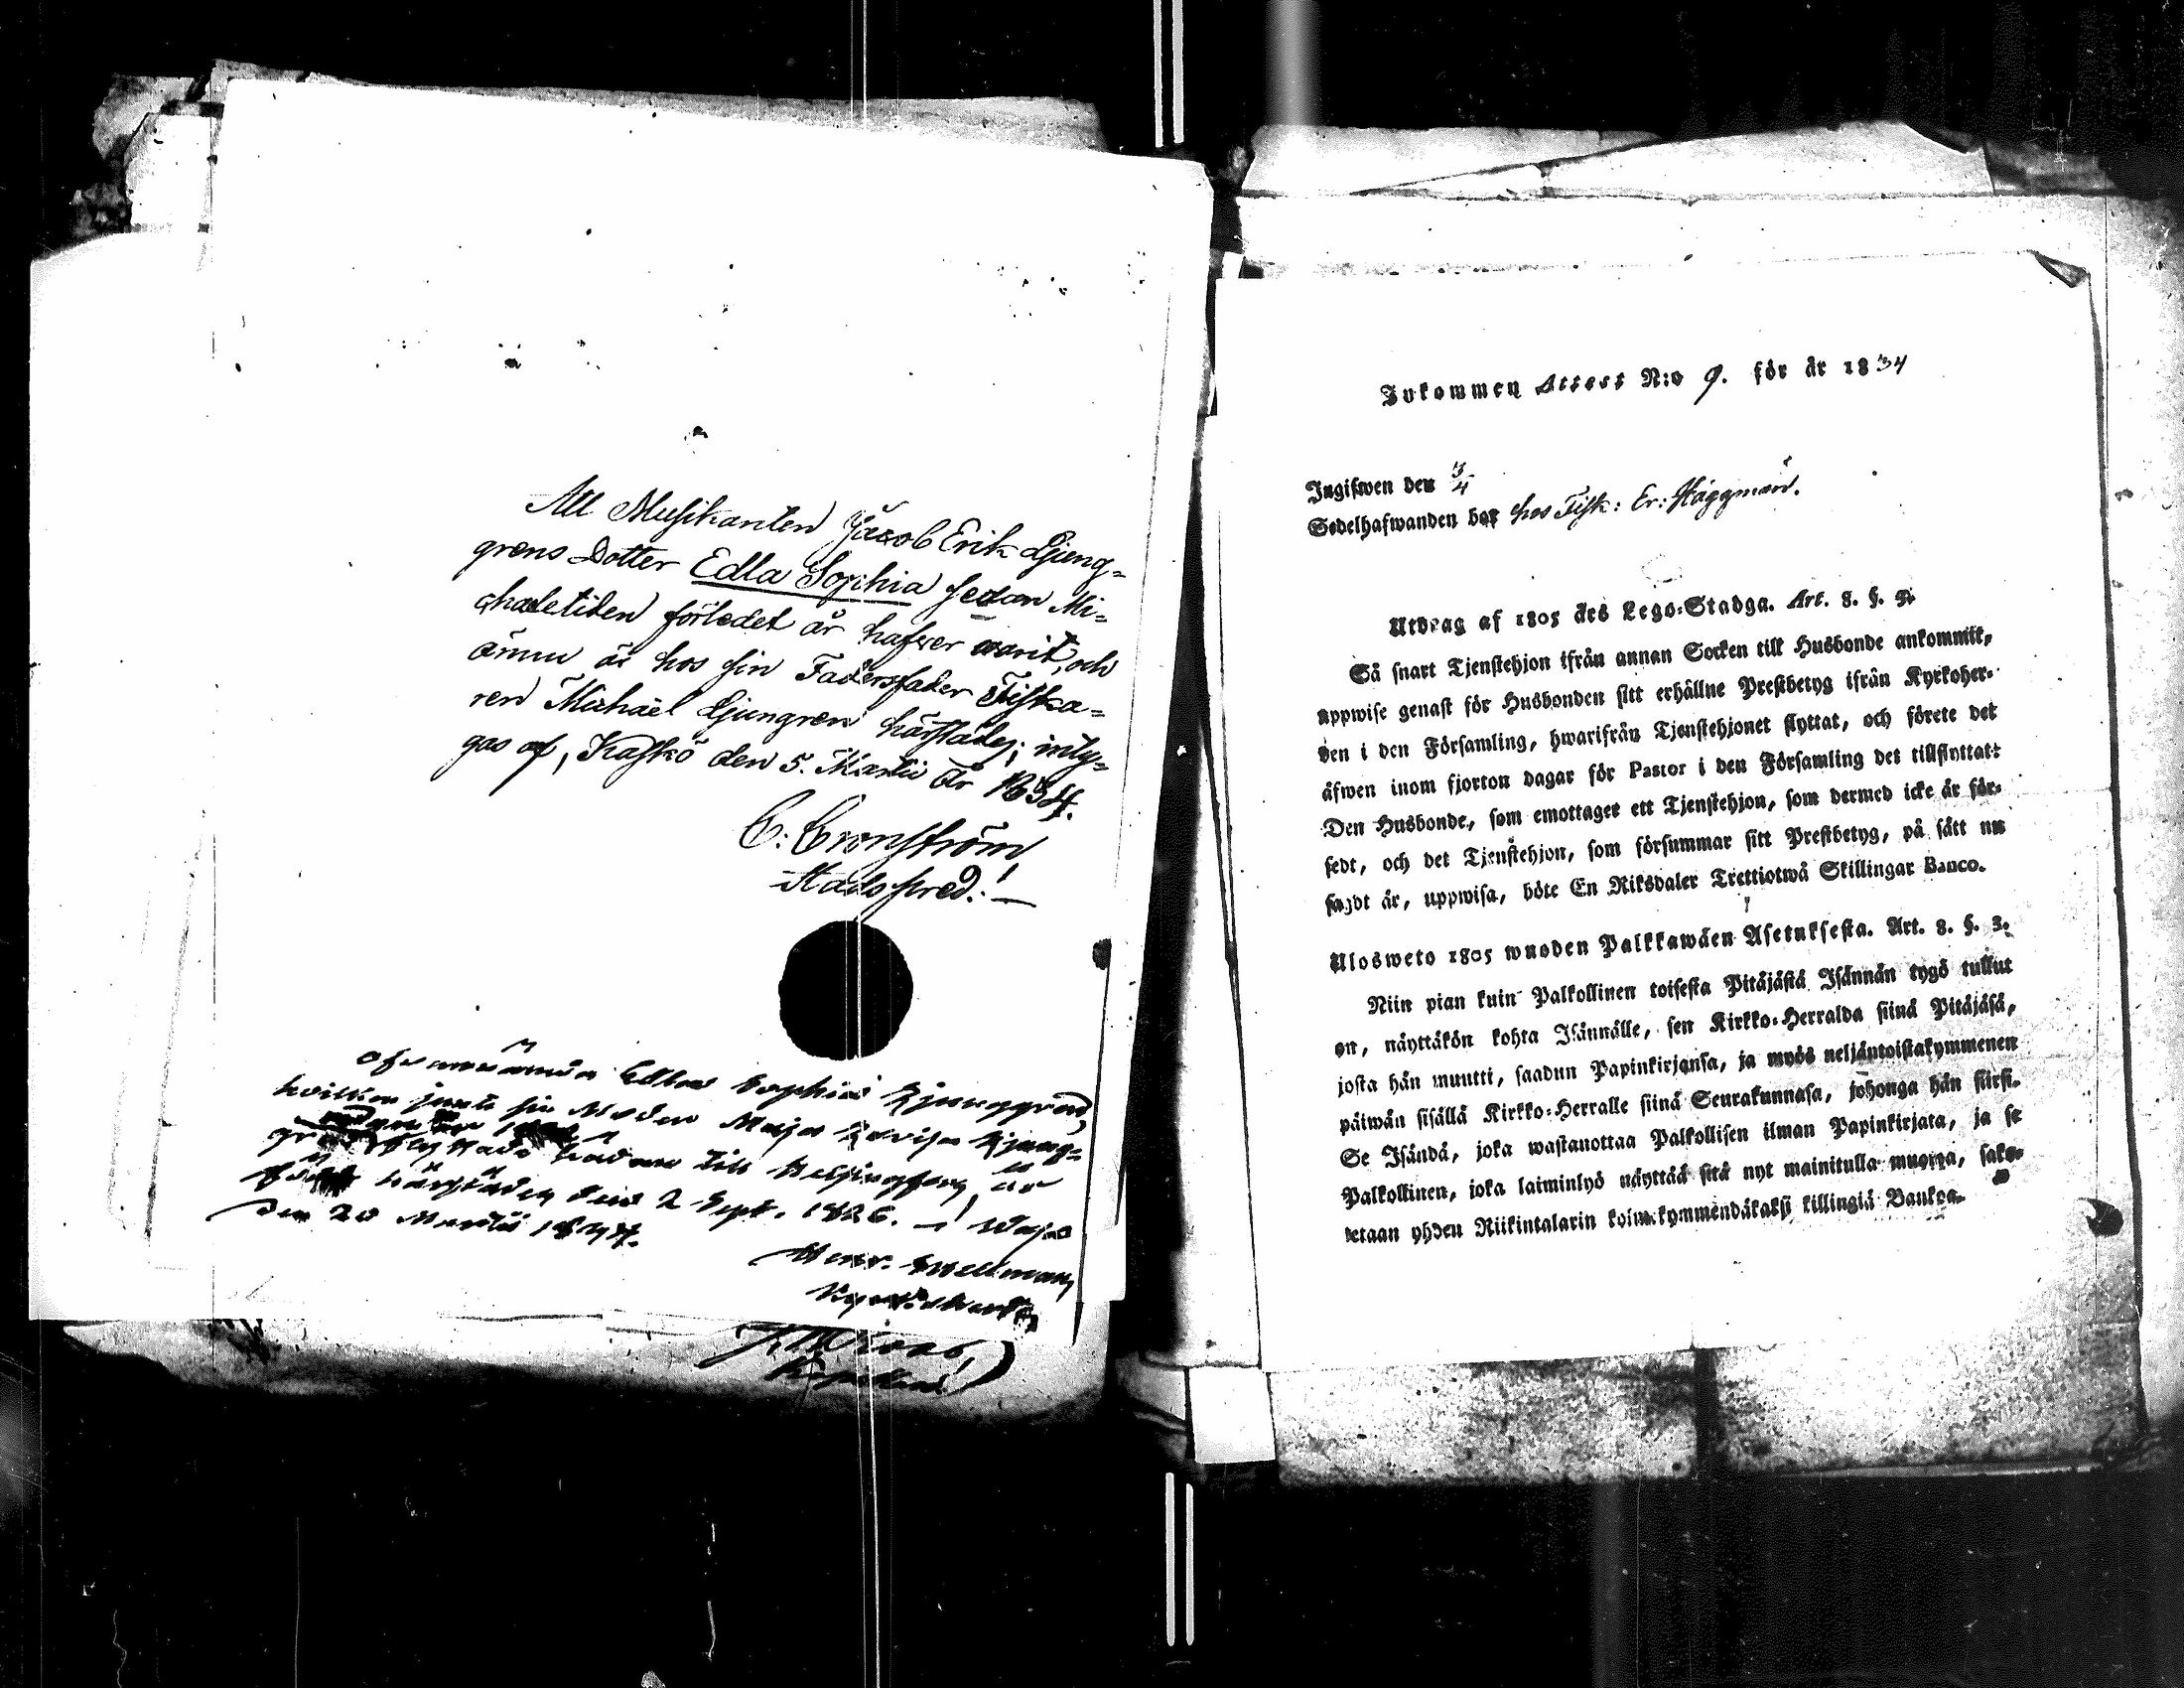 Att Musikanten Jacob Erik Ljung=
grens Dotter Edla Sophia sedan Mi=
chaelitiden förledet år hafver warit, och
ännu är hos sin Fadersfader Fiska=
ren Michael Ljungren härstädes; inty=
gas af, Kaskö den 5. Martii År 1834.
C. Cronström
Stads pred:
Ofvannämnda Edla Sophia Ljunggren,
hvilken jemte sin Moder Maja Lovisa Ljung=
gren flyttade hädan till Helsingfors, är
född härstädes den 2 Sept. 1826. – Wasa
den 20 Martii 1844.
Henr. Hellman
Inkommen Attest N:o 9. för år 1834
Ingifwen den 3/4
Sedelhafwanden bor hos Fisk: Er: Häggman.
Utdrag af 1805 års Lego-Stadga. Art. 8. §. 3.
Så snart Tjenstehjon ifrån annan Socken till Husbonde ankommit,
uppwise genast för Husbonden sitt erhållne Prestbetyg ifrån Kyrkoher-
den i den Församling, hwarifrån Tjenstehjonet flyttat, och förete det
äfwen inom fjorton dagar för Pastor i den Församling det tillflyttat:
Den Husbonde, som emottaget ett Tjenstehjon, som dermed icke är för-
sedt, och det Tjenstehjon, som försummar sitt Prestbetyg, på sätt nu
sagdt är, uppwisa, böte En Riksdaler Trettiotwå Skillingar Banco.
Ulosweto 1805 wuoden Palkkawäen Asetuksesta. Art. 8. §. 3.
Niin pian kuin Palkollinen toisesta Pitäjästä Isännän tygö tullut
on, näyttäkön kohta Isännälle, sen Kirkko-Herralda siinä Pitäjäsä,
josta hän muutti, saadun Papinkirjansa, ja myös neljäntoistakymmenen
päiwän sisällä Kirkko-Herralle siinä Seurakunnasa, johonga hän siirsi.
Se Isändä, joka wastanottaa Palkollisen ilman Papinkirjata, ja se
Palkollinen, joka laiminlyö näyttää sitä nyt mainitulla muotoa, sako-
tetaan yhden Riikintalarin kolmekymmendäkaksi killingiä Bankoa.